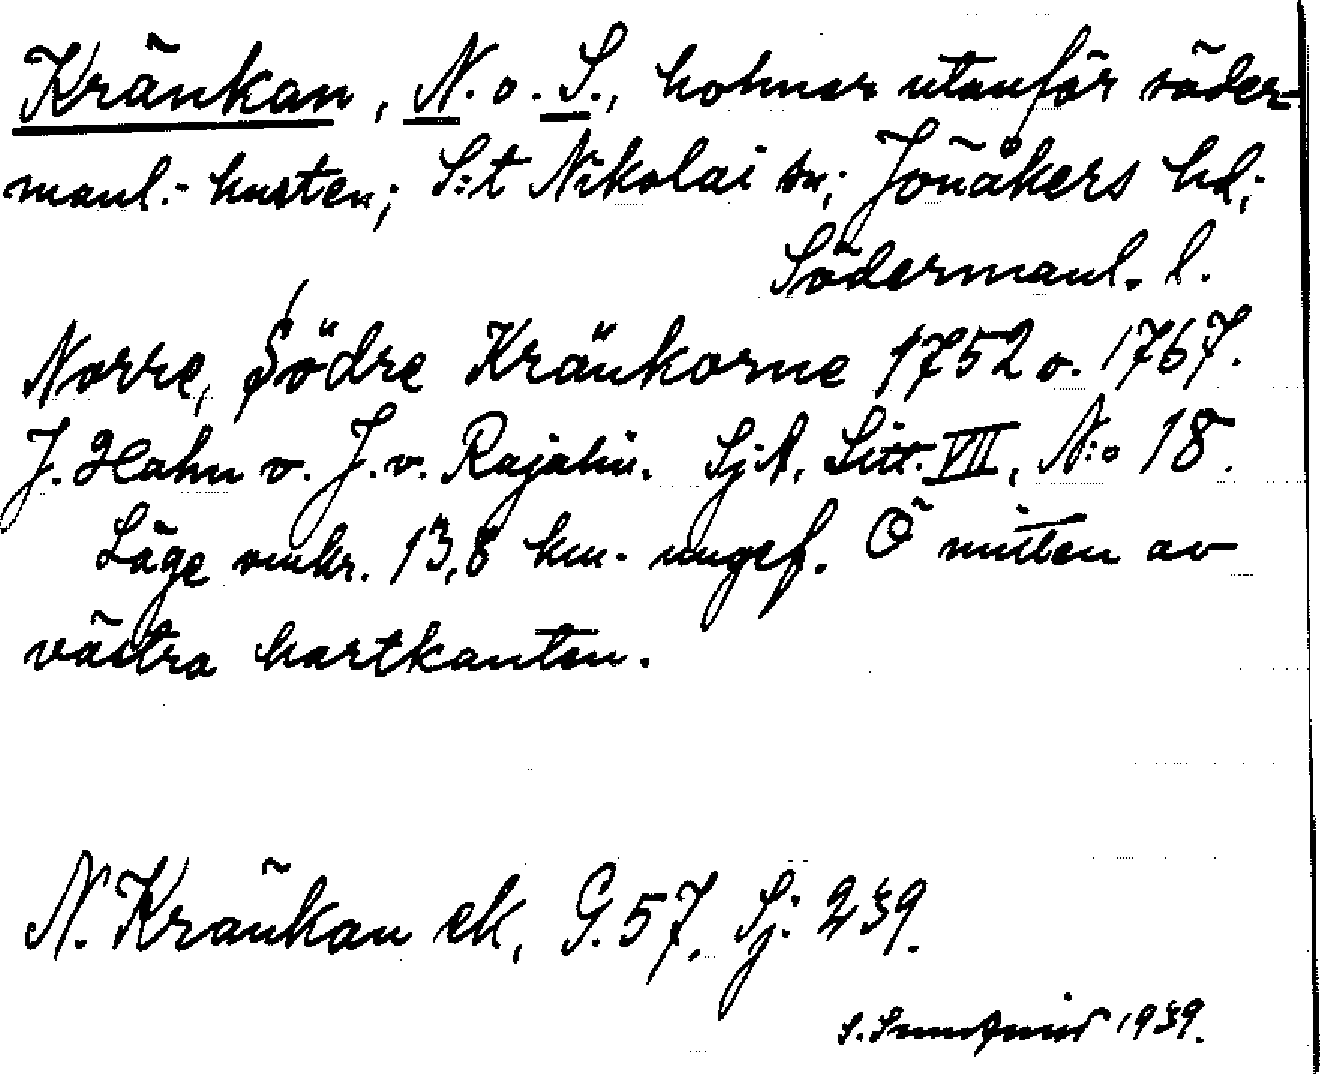 Kränkan, N. o. S., holmar utanför söder-
manl. kusten; S:t Nikolai sn; Jönåkers hd;
Södermanl. l.
Norre, Södre Kränkorne 1752 o. 1767.
J. Hahn o. J. v. Rajalin. Sj.A. Litt. VII, N:o 18.
Läge omkr. 13,8 km. ungef. Ö mitten av
västra kartkanten.
N. Kränkan ek, G. 57. Sj: 239.
S. 1939.